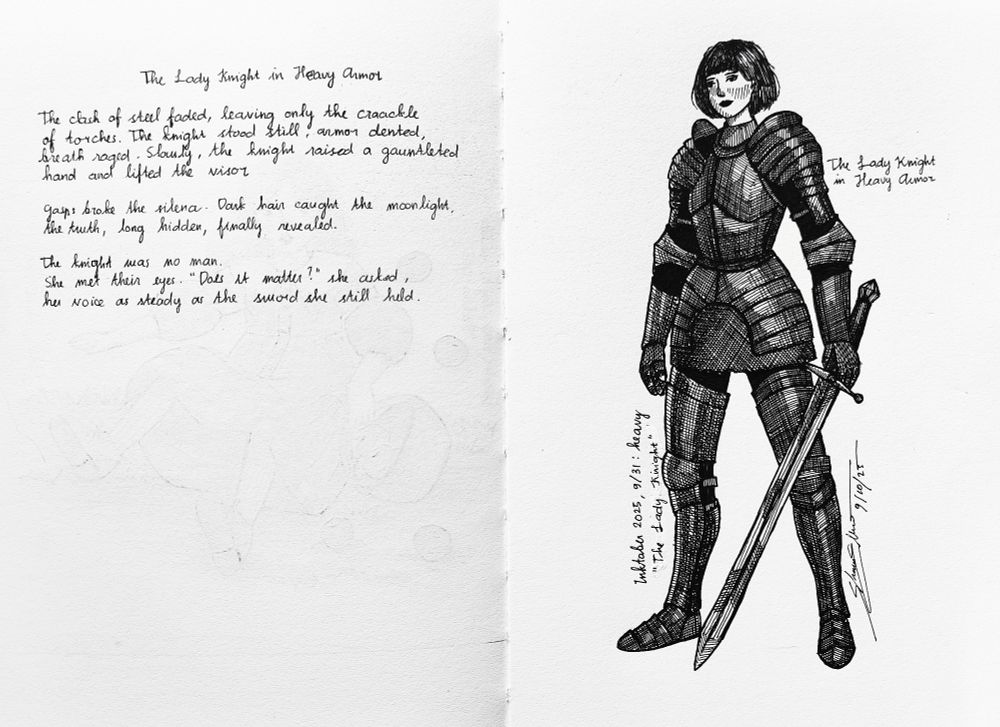 The Lady Knight in Heavy Armor
The clash of steel faded, leaving only the craackle
of torches. The knight stood still, armor dented,
breath raged. Slowly, the knight raised a gauntleted
hand and lifted the visor
Gasps broke the silence. Dark hair caught the moonlight,
the truth, long hidden, finally revealed.
The knight was no man.
She met their eyes. "Does it matter?" she asked,
her voice as steady as the sword she still held.
The Lady Knight
in Heavy Armor
Inktober 2025, 9/31: heavy
"The Lady Knight"
9/10/25